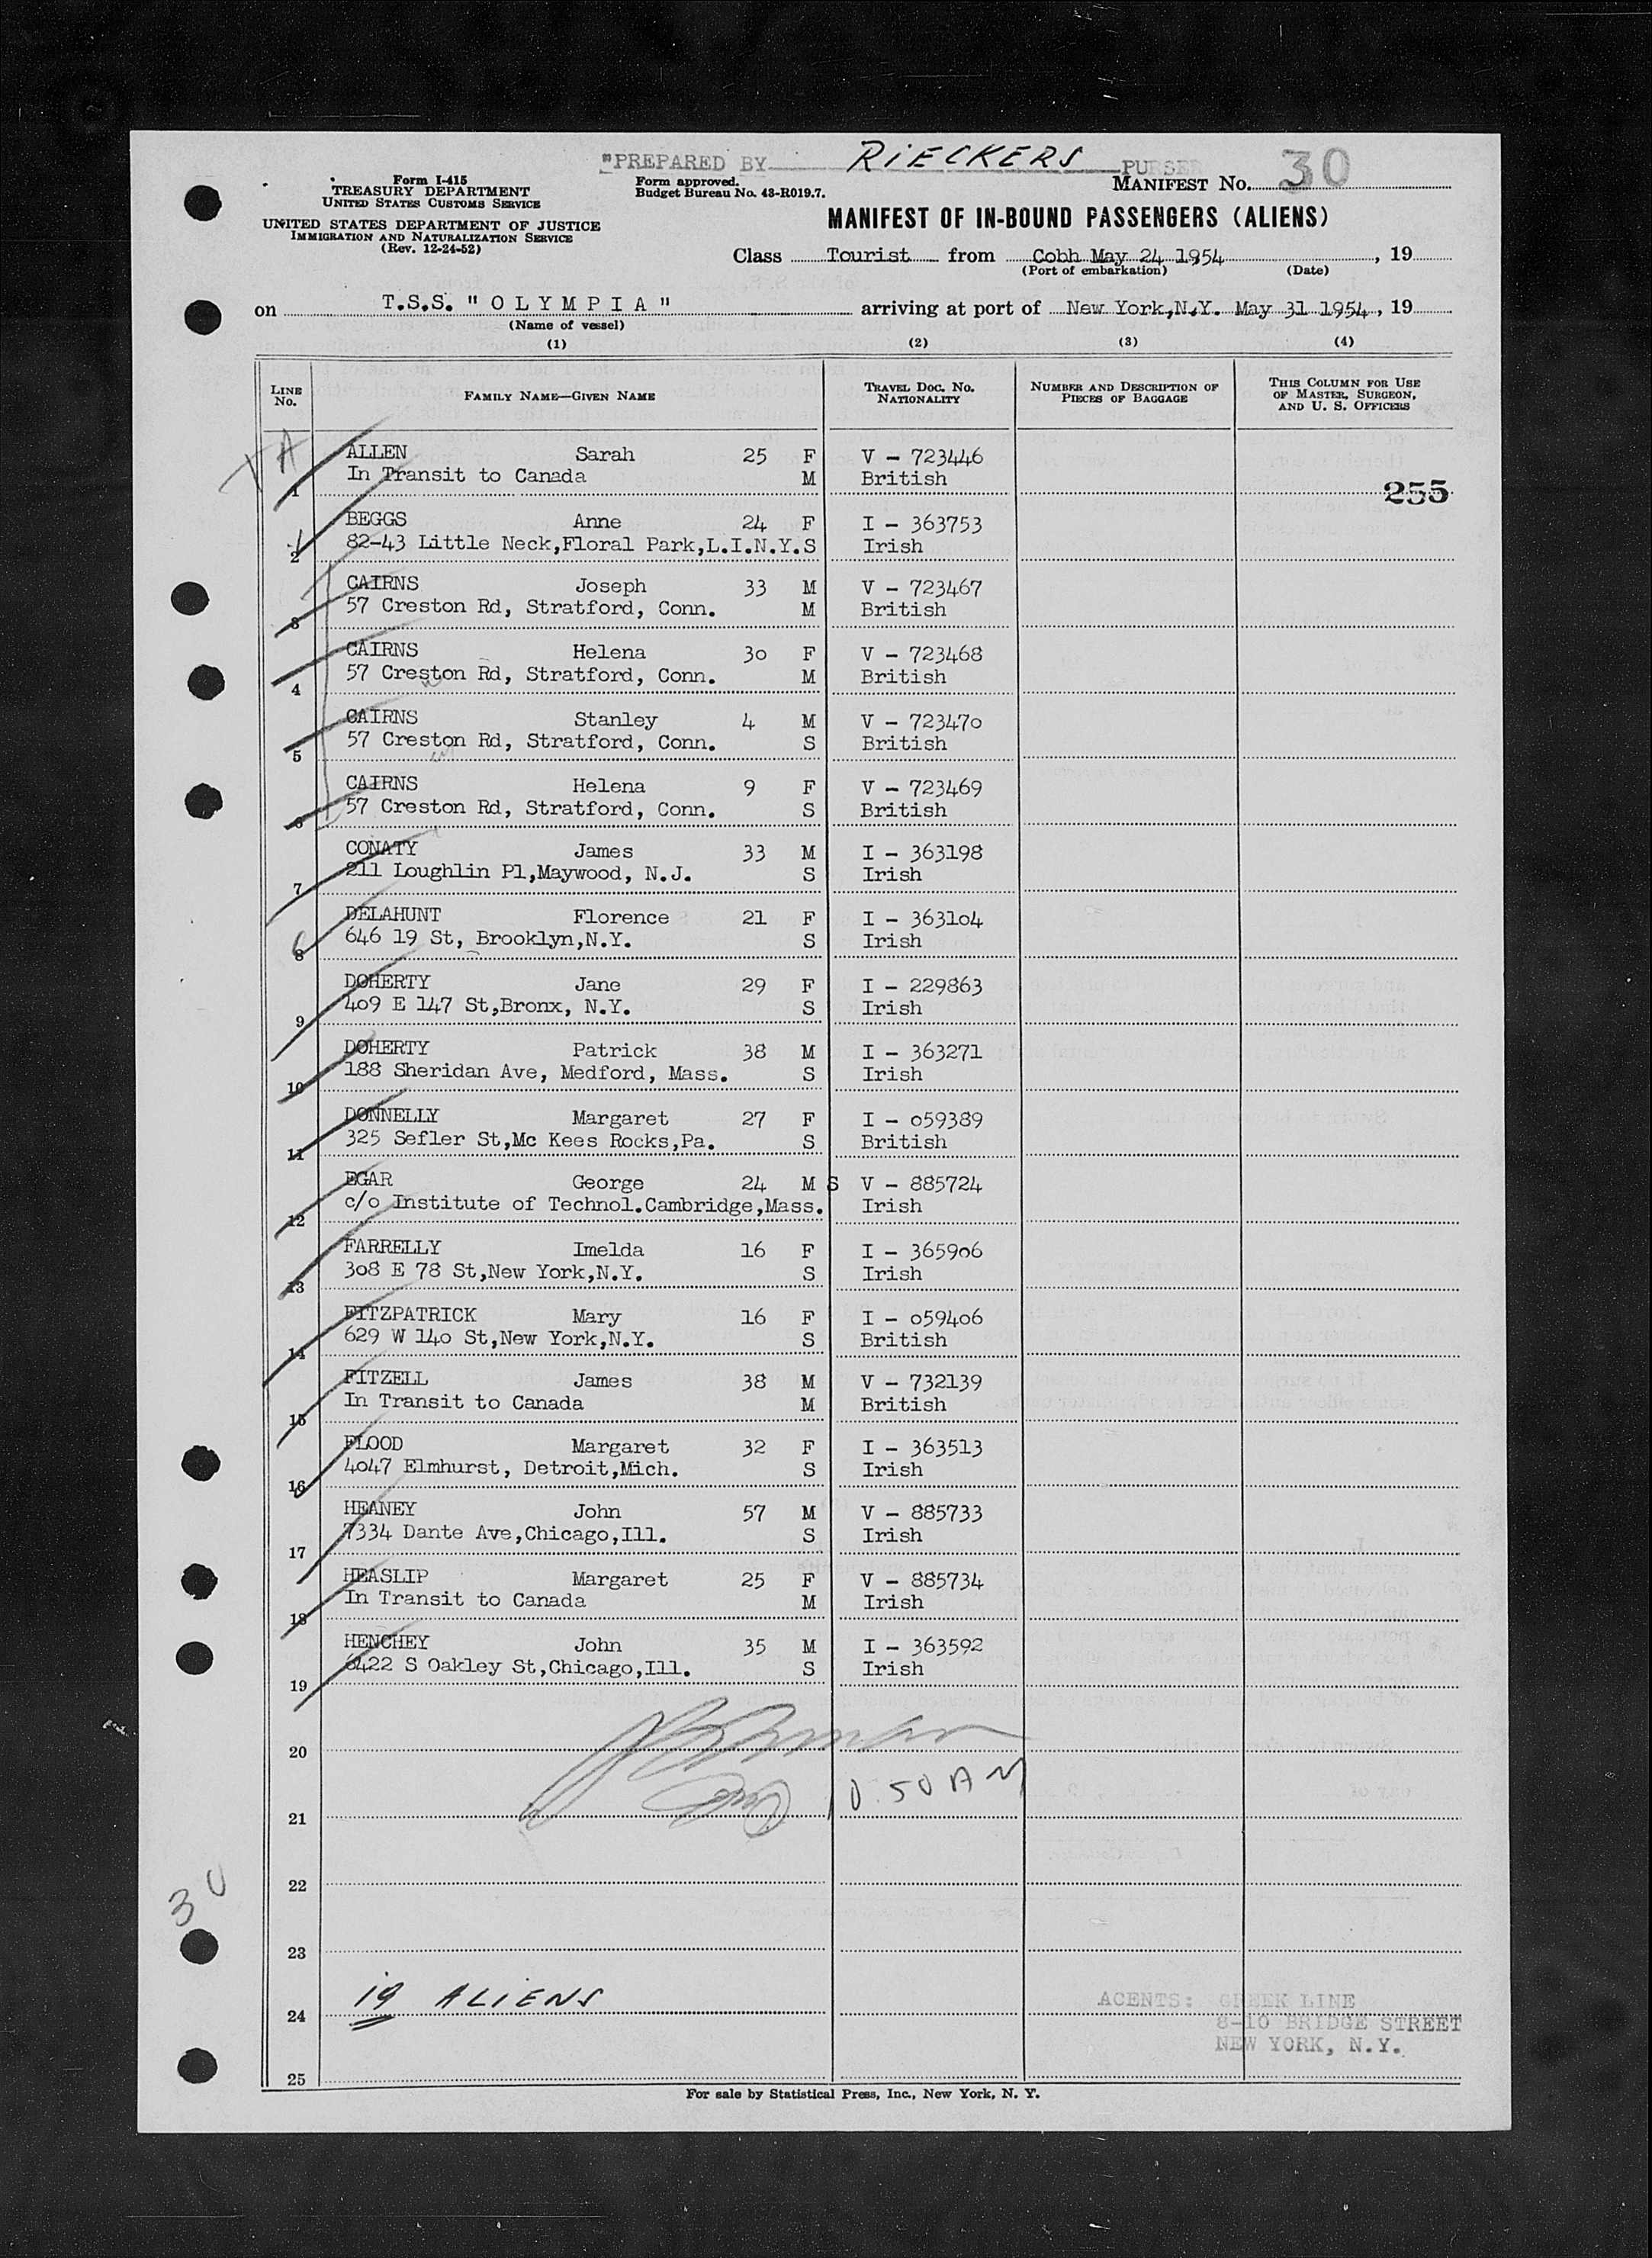 "PREPARED BY RIECKERS PURSER
Form I-415
TREASURY DEPARTMENT
UNITED STATES CUSTOMS SERVICE
UNITED STATES DEPARTMENT OF JUSTICE
IMMIGRATION AND NATURALIZATION SERVICE
(Rev. 12-24-52)
Form approved.
Budget Bureau No. 43-R019.7.
MANIFEST NO. 30
MANIFEST OF IN-BOUND PASSENGERS (ALIENS)
Class Tourist from Cobh May 24 1954, 19
(Port of embarkation) (Date)
on T.S.S. "OLYMPIA" arriving at port of New York,N.Y. May 31 1954, 19
(Name of vessel)
(1) (2) (3) (4)
LINE NO. FAMILY NAME—GIVEN NAME TRAVEL DOC. NO. NATIONALITY NUMBER AND DESCRIPTION OF PIECES OF BAGGAGE THIS COLUMN FOR USE OF MASTER, SURGEON, AND U. S. OFFICERS
ALLEN Sarah 25 F V - 723446
1 In Transit to Canada M British 255
BEGGS Anne 24 F I - 363753
2 82-43 Little Neck,Floral Park,L.I.N.Y.S Irish
CAIRNS Joseph 33 M V - 723467
3 57 Creston Rd, Stratford, Conn. M British
CAIRNS Helena 30 F V - 723468
4 57 Creston Rd, Stratford, Conn. M British
CAIRNS Stanley 4 M V - 723470
5 57 Creston Rd, Stratford, Conn. S British
CAIRNS Helena 9 F V - 723469
6 57 Creston Rd, Stratford, Conn. S British
CONATY James 33 M I - 363198
7 211 Loughlin Pl,Maywood, N.J. S Irish
DELAHUNT Florence 21 F I - 363104
8 646 19 St, Brooklyn,N.Y. S Irish
DOHERTY Jane 29 F I - 229863
9 409 E 147 St,Bronx, N.Y. S Irish
DOHERTY Patrick 38 M I - 363271
10 188 Sheridan Ave, Medford, Mass. S Irish
DONNELLY Margaret 27 F I - 059389
11 325 Sefler St,Mc Kees Rocks,Pa. S British
EGAR George 24 M S V - 885724
12 c/o Institute of Technol.Cambridge,Mass. Irish
FARRELLY Imelda 16 F I - 365906
13 308 E 78 St,New York,N.Y. S Irish
FITZPATRICK Mary 16 F I - 059406
14 629 W 140 St,New York,N.Y. S British
FITZELL James 38 M V - 732139
15 In Transit to Canada M British
FLOOD Margaret 32 F I - 363513
16 4047 Elmhurst, Detroit,Mich. S Irish
HEANEY John 57 M V - 885733
17 7334 Dante Ave,Chicago,Ill. S Irish
HEASLIP Margaret 25 F V - 885734
18 In Transit to Canada M Irish
HENCHEY John 35 M I - 363592
19 6422 S Oakley St,Chicago,Ill. S Irish
20
21 10 50 AM
22
30
23
24 19 ALIENS
AGENTS: GREEK LINE
8-10 BRIDGE STREET
NEW YORK, N.Y.
25
For sale by Statistical Press, Inc., New York, N. Y.